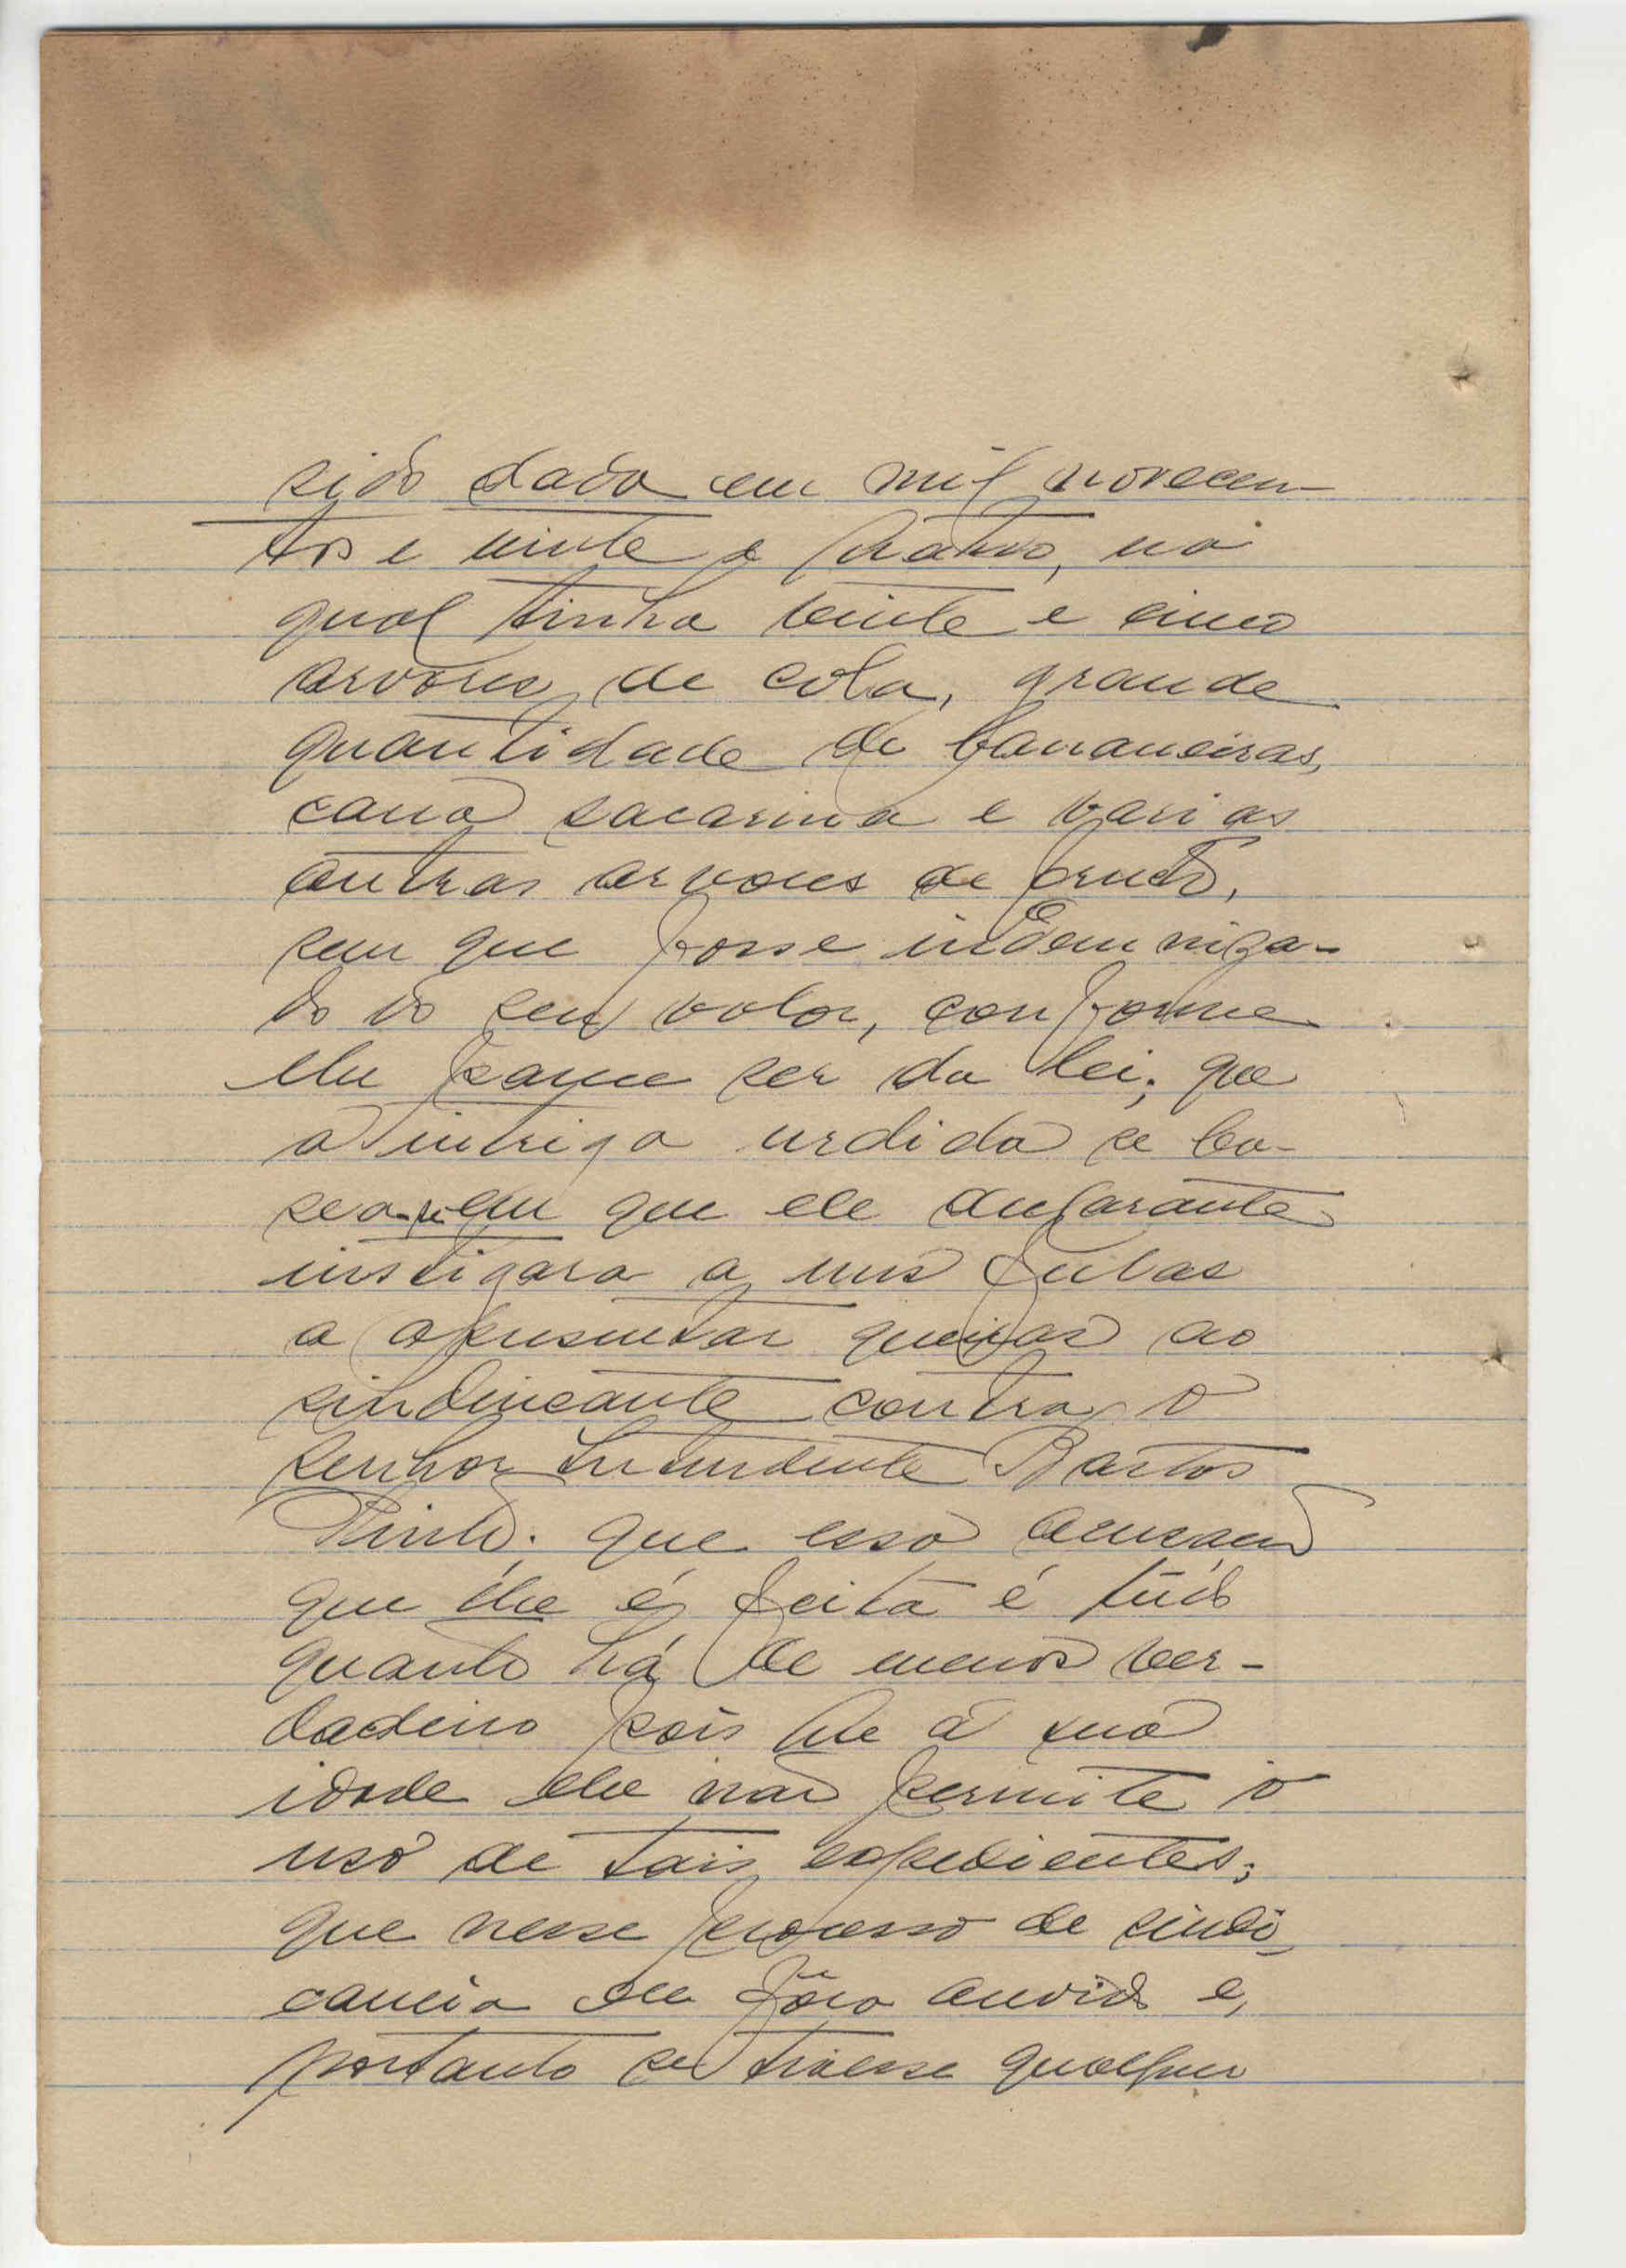 sido dada em mil novecen-
tos e vinte e quatro, na
qual tinha vinte e cinco
arvores de cola, grande
quantidade de bananeiras,
cana sacarina e varias
outras arvores de fruto,
sem que fosse indemniza-
do do seu valor, conforme
lhe parece ser da lei; que
a intriga urdida se ba-
seara em que ele
instigara a uns
a apresentar queixas ao
sindicante contra o
senhor Intendente Bastos
Pinto; que essa acusação
que lhe é feita é tudo
quanto há de menos ver-
dadeiro pois que a sua
idade lhe não permite o
uso de tais expedientes;
que nesse processo de sindi-
cancia ele fôra ouvido e,
portanto se tivesse qualquer